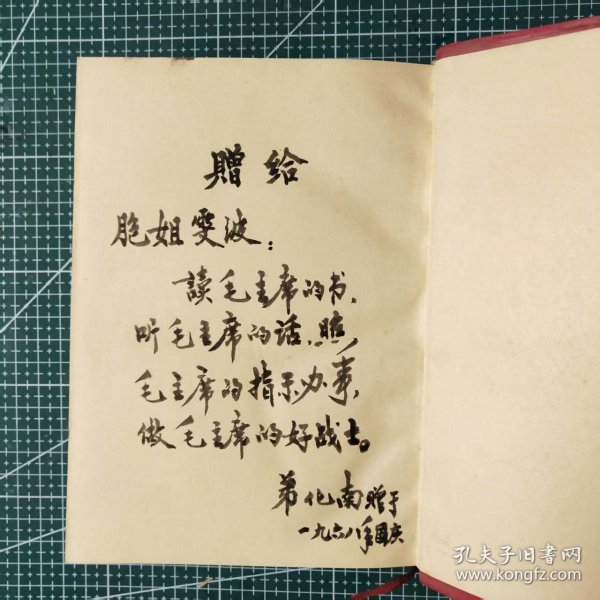 贈给
胞姐雯波：
讀毛主席的书，
听毛主席的话，照
毛主席的指示办事，
做毛主席的好战士。
弟化南赠于
一九六八年国庆
孔夫子旧书网
www.kongfz.com